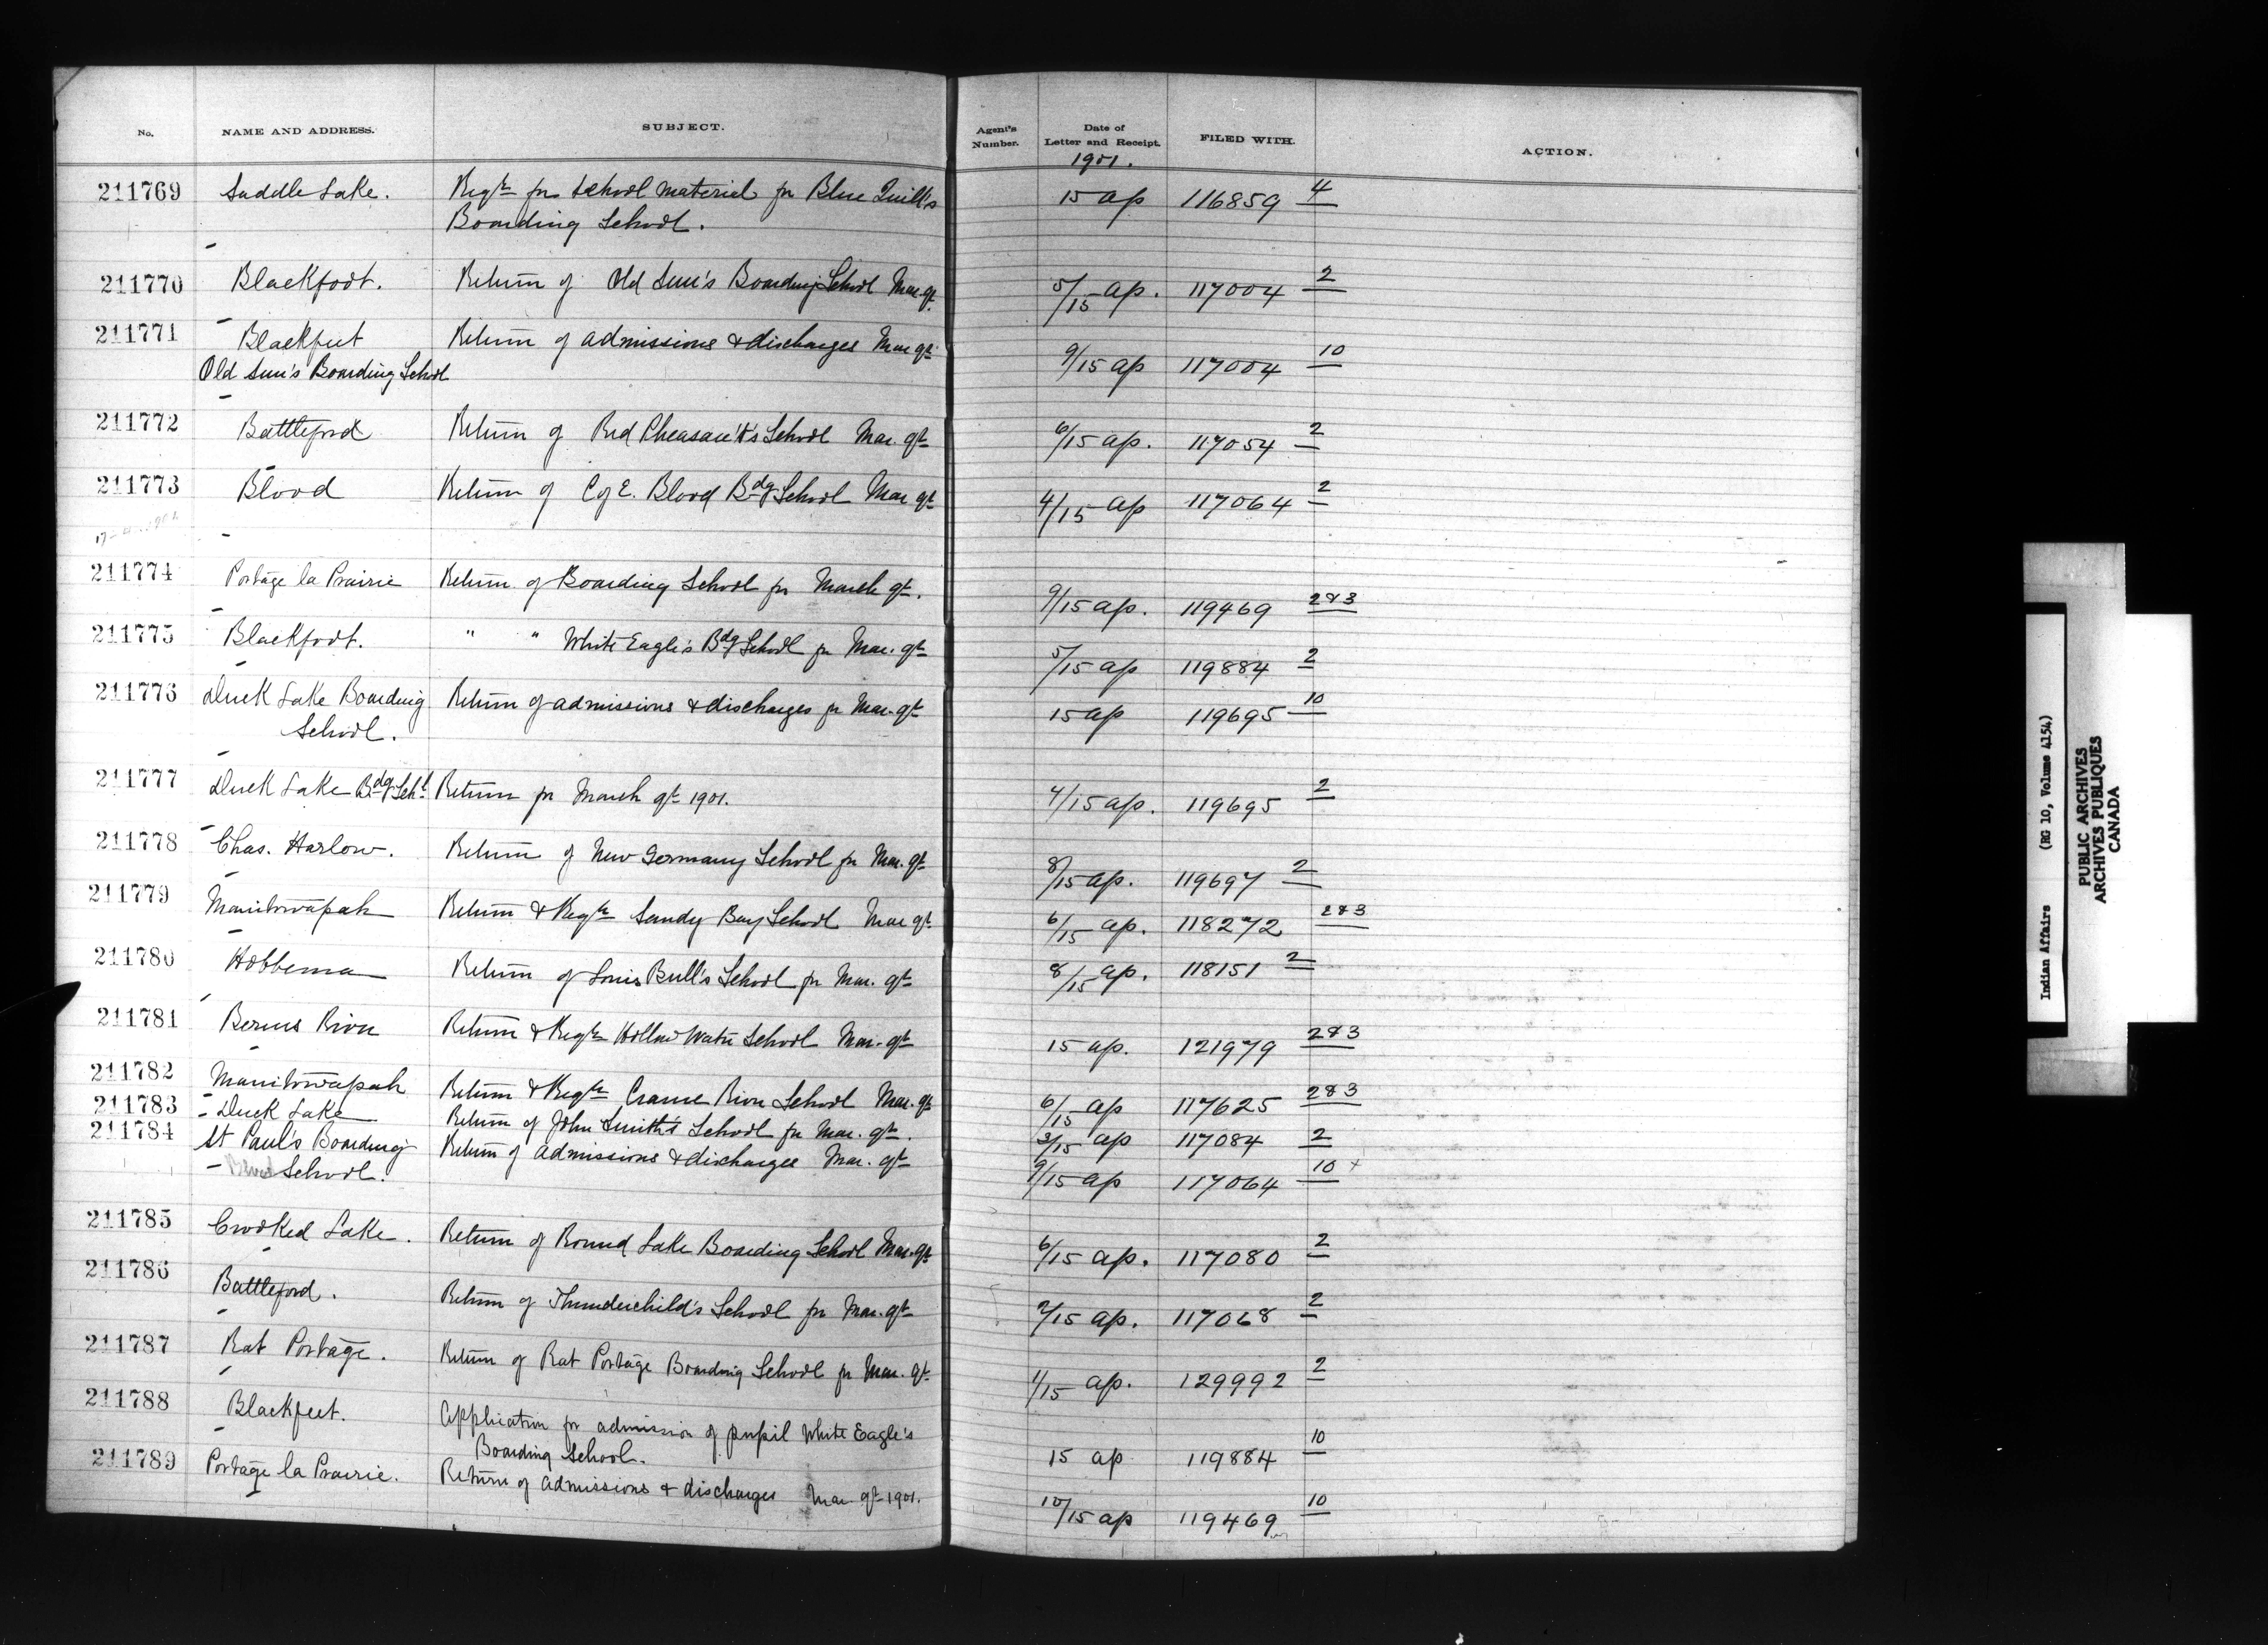 No. NAME AND ADDRESS. SUBJECT. Agent's Number. Date of Letter and Receipt. FILED WITH. ACTION.
1901.
211769 Saddle Lake. Reqtn for School material for Blue Quill's 15 ap 116859 4
Boarding School.
211770 Blackfoot. Return of Old Sun's Boarding School Mar. qt. 5/15 ap. 117004 2
211771 Blackfeet Return of admissions & discharges Mar qt. 9/15 ap 117004 10
Old Sun's Boarding School
211772 Battleford Return of Red Pheasant's School Mar. qt 6/15 ap. 117054 2
211773 Blood Return of C of E. Blood Bdg School Mar qt 4/15 ap 117064 2
211774 Portage la Prairie Return of Boarding School for March qt. 9/15 ap. 119469 2&3
211775 Blackfoot. " " White Eagle's Bdg School for Mar. qt 5/15 ap 119884 2
211776 Duck Lake Boarding Return of admissions & discharges for Mar. qt 15 ap 119695 10
School.
211777 Duck Lake Bdg Schl Return for March qt 1901. 4/15 ap. 119695 2
211778 Chas. Harlow. Return of New Germany School for Mar. qt 8/15 ap. 119697 2
211779 Manitowapah Return & Reqtn Sandy Bay School Mar qt 6/15 ap. 118272 2&3
211780 Hobbema Return of Louis Bull's School for Mar. qt 8/15 ap. 118151 2
211781 Berens River Return & Reqtn Hollow Water School Mar. qt 15 ap. 121979 2&3
211782 Manitowapah Return & Reqtn Crane River School Mar. qt 6/15 ap 117625 2&3
211783 Duck Lake Return of John Smith's School for Mar. qt. 3/15 ap 117084 2
211784 St Paul's Boarding Return of admissions & discharges Mar. qt 9/15 ap 117064 10 x
Blood School.
211785 Crooked Lake. Return of Round Lake Boarding School Mar. qt 6/15 ap. 117080 2
211786 Battleford. Return of Thunderchild's School for Mar. qt 2/15 ap. 117068 2
211787 Rat Portage. Return of Rat Portage Boarding School for Mar. qt. 1/15 ap. 129992 2
211788 Blackfeet. Application for admission of pupil White Eagle's 15 ap 119884 10
Boarding School.
211789 Portage la Prairie. Return of admissions & discharges Mar. qt 1901. 10/15 ap 119469 10
Indian Affairs (RG 10, Volume 4154)
PUBLIC ARCHIVES
ARCHIVES PUBLIQUES
CANADA